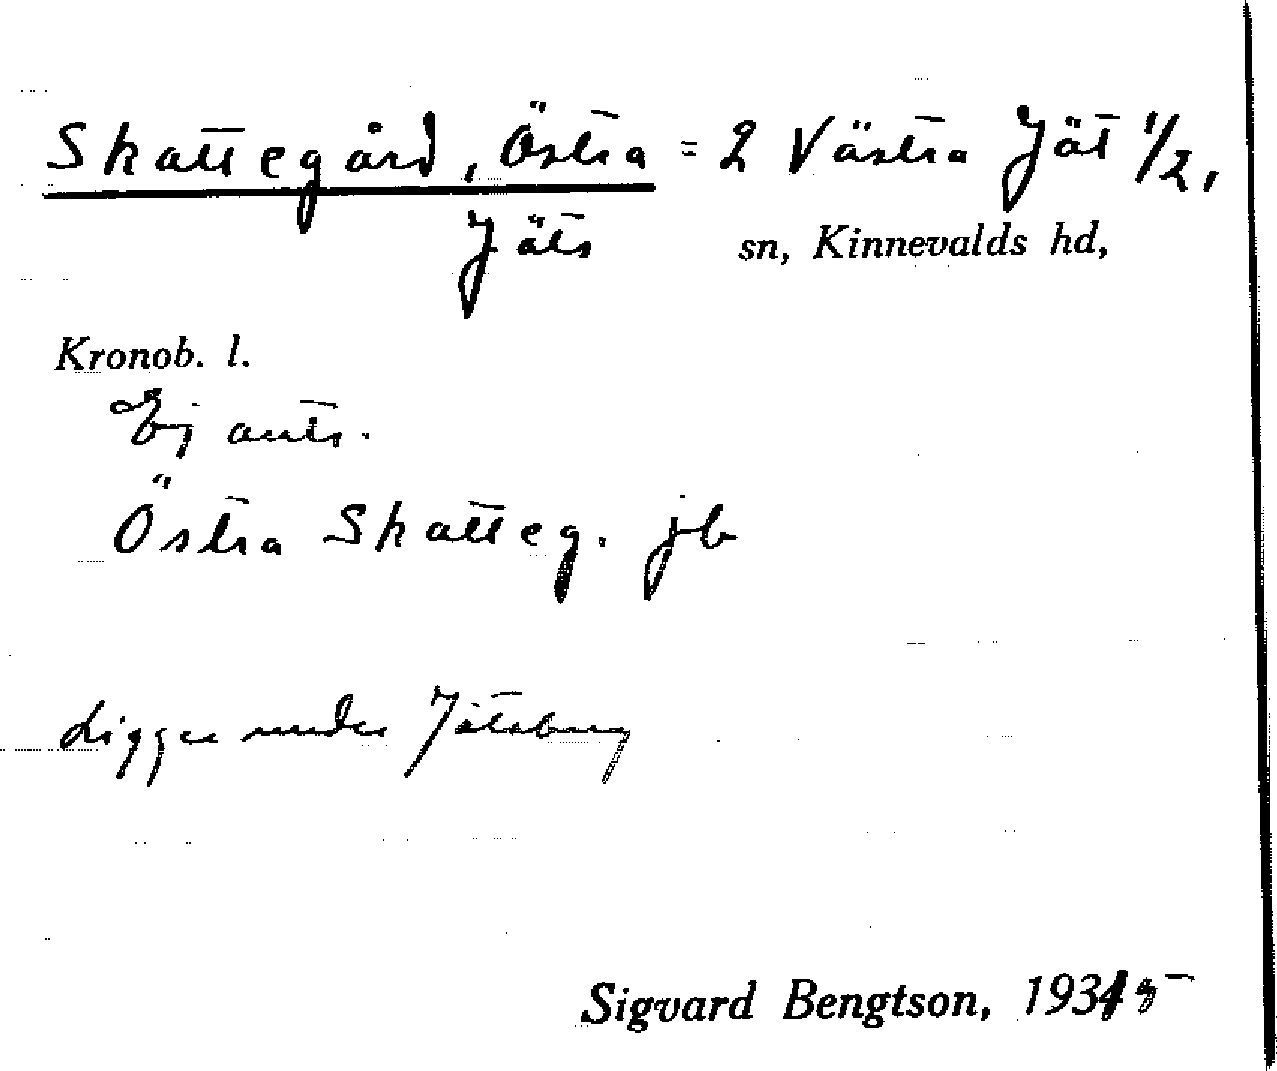 Skattegård, Östra = 2 Västra Jät 1/2,
Jäts sn, Kinnevalds hd,
Kronob. l.
Ej ants.
Östra Skatteg. jb
Ligger under Jätsberg
Sigvard Bengtson, 1935